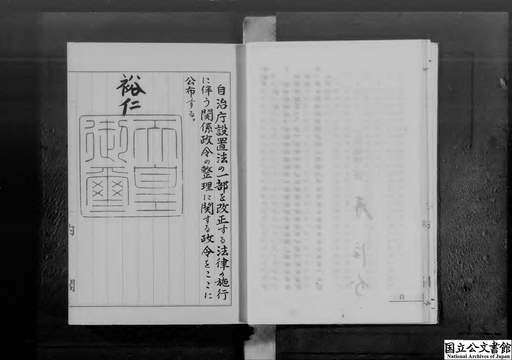 自治庁設置法の一部を改正する法律の施行
に伴う関係政令の整理に関する政令をここに
公布する。
裕仁
天皇
御璽
内閣
国立公文書館
National Archives of Japan